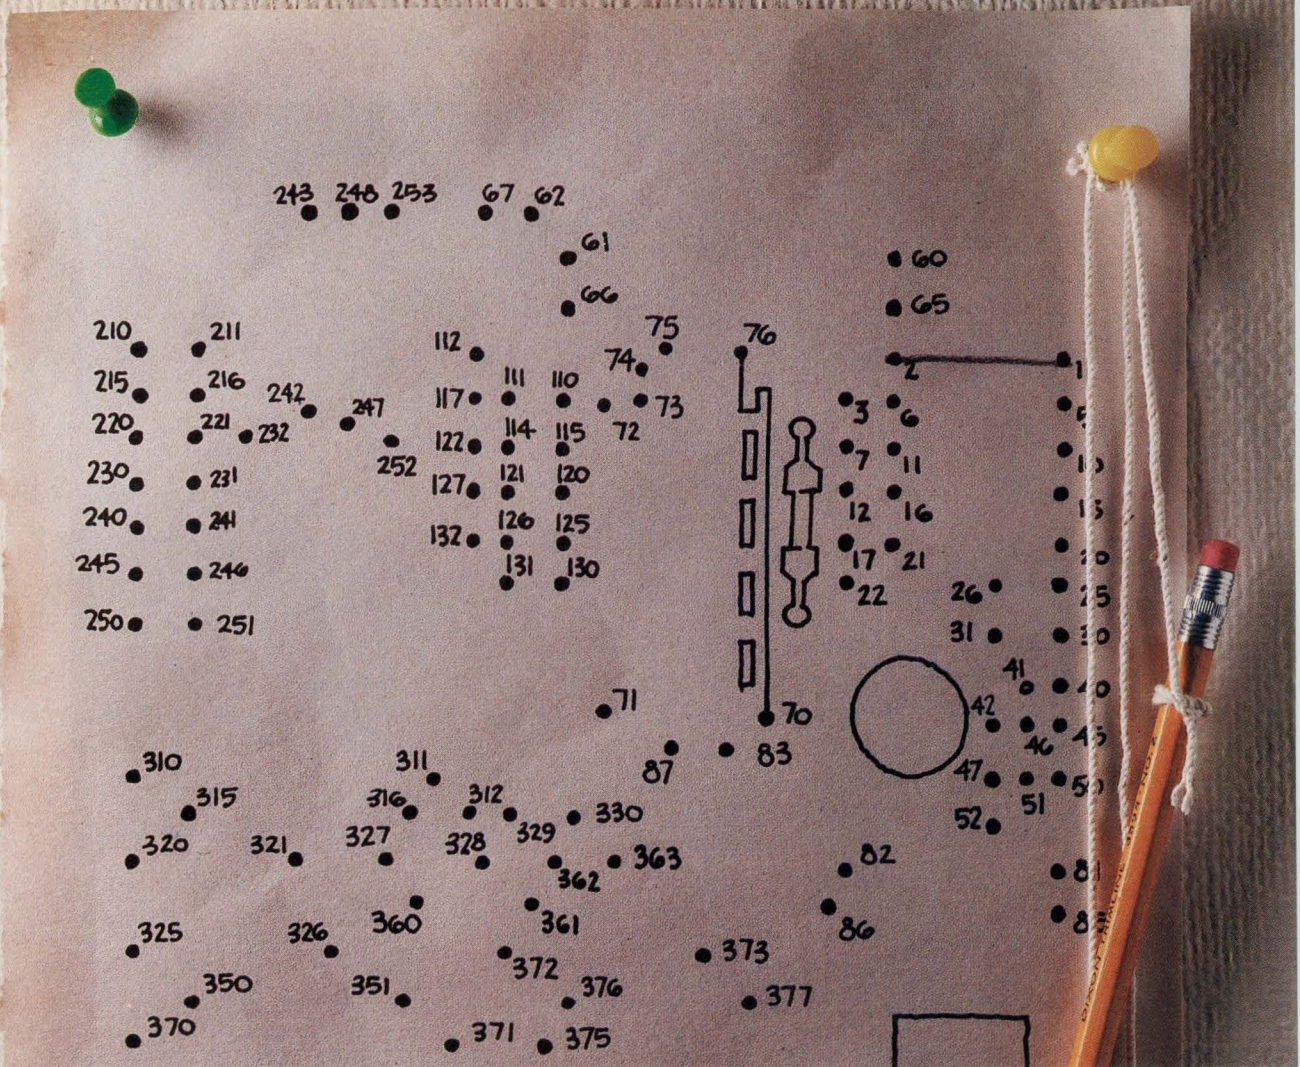 243 248 253 67 62
61
60
66 65
210 211 112 75 76
74 2 1
215 216 242 117 111 110 73 3 6
220 221 232 247 72
252 122 114 115 7 11
230 231 127 121 120 12 16
240 241 132 126 125 17 21
245 246 131 130 22 26 25
250 251 31 30
41 40
71 70 42 46 45
87 83 47 51 50
310 311 52
315 316 312 330
320 321 327 328 329 363 82 81
362
360 361 86
325 326 372 373
350 351 376 377
370 371 375
DIXON TRIMLINE 3554 NO. 2